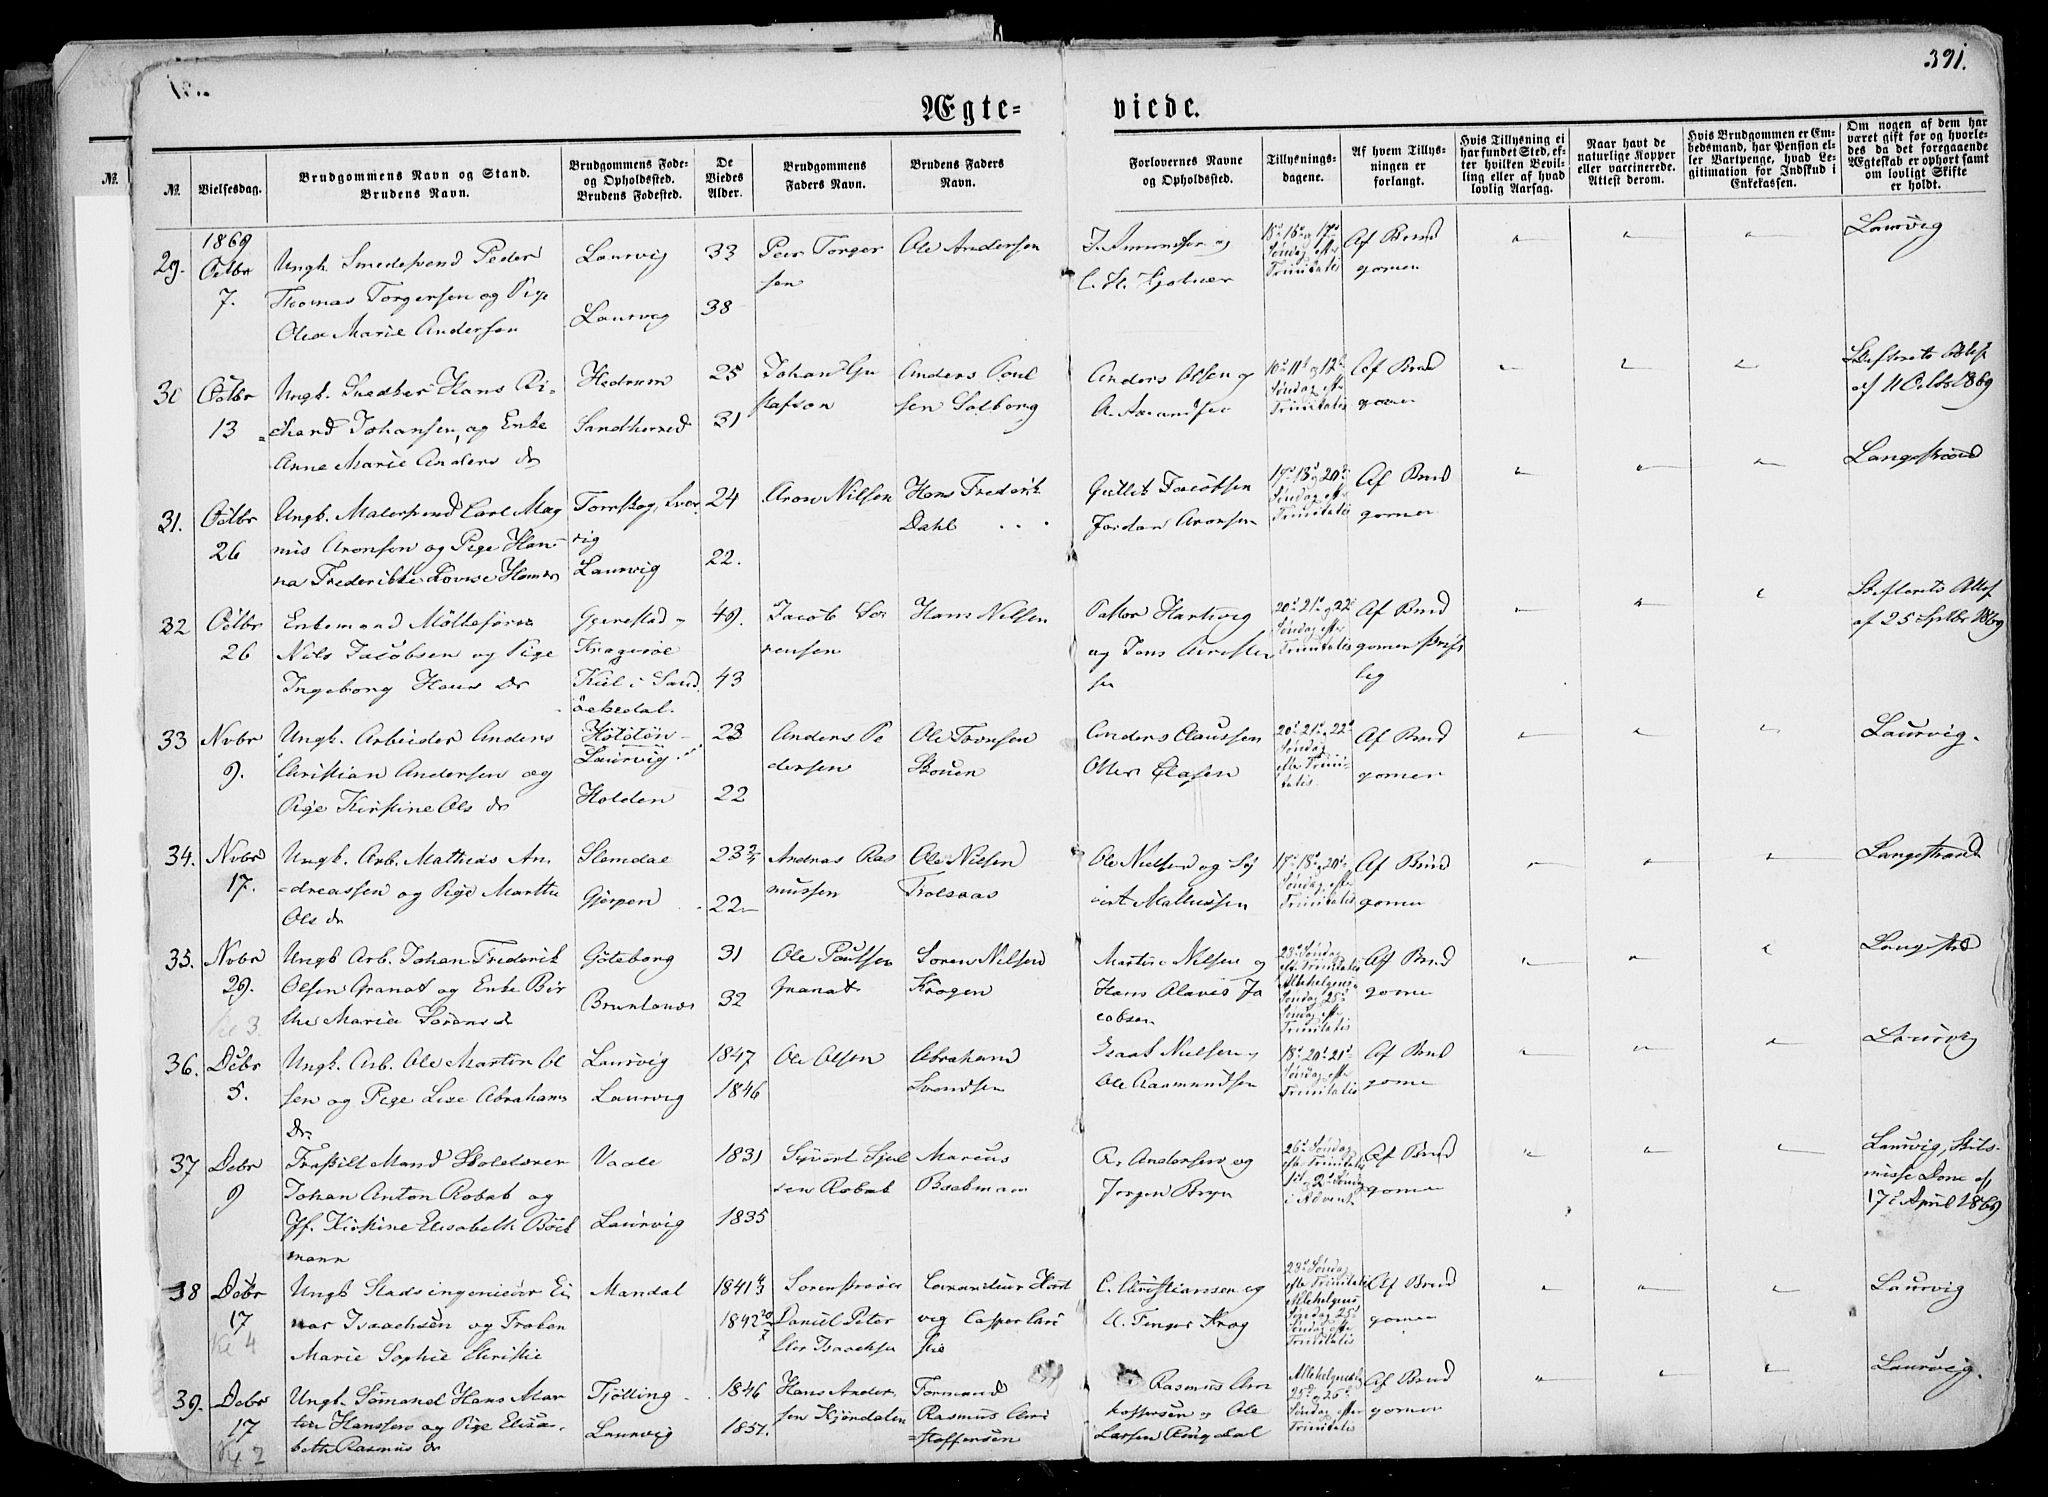 391.
Ægte= viede.
№.
№.
Vielsesdag.
Brudgommens Navn og Stand.
Brudens Navn.
Brudgommens Føde-
og Opholdssted.
Brudens Fødested.
De
Viedes
Alder.
Brudgommens
Faders Navn.
Brudens Faders
Navn.
Forlovernes Navne
og Opholdssted.
Tillysnings-
dagene.
Af hvem Tillys-
ningen er
forlangt.
Hvis Tillysning ei
har fundet Sted, ef-
ter hvilken Bevil-
ling eller af hvad
lovlig Aarsag.
Naar havt de
naturlige Kopper
eller vaccinerede.
Attest derom.
Hvis Brudgommen er Em-
bedsmand, har Pension el-
ler Vartpenge, hvad Le-
gitimation for Indskud i
Enkekassen.
Om nogen af dem har
været gift før og hvorle-
des da det foregaaende
Ægteskab er ophørt samt
om lovligt Skifte
er holdt.
29.
1869
Octbr
7.
Ungk. Smedesvend Peder
Thomas Torgersen og Pige
Olea Marie Andersen
Laurvig
Laurvig
33
38
Peer Torger
sen
Ole Andersen
J. Amundsen og
18de 16de og 17de
Søndag eft.
Trinitatis
Af Brud
gomen
Laurvig
30
Octbr
13
Ungk. Snedker Hans Ri-
=chard Johansen, og Enke
Anne Marie Anders dr
Hedrum
Sandherred
25
31
Johan Gu
stafson
Anders Poul
sen Solberg
Anders Olsen og
A. Amundsen
10de 11te og 12te
Søndag efter
Trinitatis
Af Brud
gomen
Skifterets Attest
af 11 Octbr 1869
31.
Octbr
26
Ungk. Malersvend Carl Mag
nus Aronsen og Pige Han-
na Frederikke Lovise Hansdr
Laurvig
24
22.
Aron Nilsen
Hans Frederik
Dahl
Gullik Jacobsen
Jordan Aronsen
17de 18de og 20de
Søndag efter
Trinitatis
Af Brud
gomen
Langestrand
32
Octbr
26
Enkemand
Nils Jacobsen og Pige
Ingeborg Hans dr
Gjerestad
Kragerøe
Kiil i Sand
økedal.
49.
43
Jacob Sø
rensen
Hans Nilsen
Pastor Hartvig
og Jens
20de 21de og 22de
Søndag efter
Trinitatis
Af Brud
gomen skrift
lig
Skifterets Attest
af 25 Septbr 1869
33
Nvbr
9.
Ungk. Arbeider Anders
Christian Andersen og
Pige Kirstine Ols dr
Laurvig
Holden
23
22
Anders Pe
dersen
Ole Tovsen
Skouen
Anders Claussen
Otter Olafsen
20de 21de og 22de
Søndag
efter Trini-
tatis.
Af Brud
gomen
Laurvig.
34.
Nvbr
17.
Ungk. Arb. Mathias An-
=dreassen og Pige Marthe
Ols dr
Slemdal
Gjerpen
23
22
Andreas Ras
mussen
Ole Nilsen
Trolsaas
Ole Nielsen og Sy
vert Mathissen
17de 18de og 20de
Søndag efter
Trinitatis
Af Brud
gomen
Langestrand
35.
Nvbr
29.
Ungk Arb. Johan Frederik
Olsen Granat og Enke Bir
the Marie Sørens dr
Gøteborg
Brunlanæs
31
32
Ole Poulsen
Granat
Søren Nilsen
Krogen
Martin Nilsen og
Hans Olaves Ja
cobsen
23de Søndag
eft. Trinitatis
Allehelgens
Søndag 25de
Søndag efter
Trinitatis
Af Brud
gomen
36.
Decbr
5.
Ungk. Arb. Ole Martin Ol
sen og Pige Lise Abrahams
dr.
Laurvig
Laurvig
1847
1846
Ole Olsen
Abraham
Svendsen
Isaak Nielsen og
Ole Rasmundsen
18de 20de 21de
Søndag efter
Trinitatis
Af Brud
gomen
Laurvig
37
Decbr
9
Fraskilt Mand Skolelærer
Johan Anton Robak og
Jf. Kirstine Elisabeth Bock
mann
Vaale
Laurvig
1831
1835
Syvert Sjul
sen Robak
Marcus
Bockmann
R. Andersen og
Jørgen Bryn
26de Søndag
efter Trinitatis
1ste og 2den Søndag
i Advent
Af Brud
gomen
Laurvig, Skils-
misse Dom af
17de April 1869
38
Decbr
17
Ungk Stadsingeniør Ei
nar Isaachsen og Frøken
Marie Sophie Christie
Mandal
1841
1842
Daniel Peter
Isaachsen
Hart
vig Casper Chri
stie
C. Christiansen og
U. Finger Krog
23de Søndag
efter Trinitatis
Allehelgens
Søndag 25de
Søndag efter
Trinitatis
Af Brud
gomen
Laurvig
39.
Decbr
17
Ungk. Sømand Hans Mar
tin Hanssen og Pige Elisa-
beth Rasmus dr
Tjølling
Laurvig
1846
1851.
Hans Ander
sen Kjøndalen
Formand
Rasmus Chri
=stoffersen
Rasmus Chri
stoffersen og Ole
Larsen Ringdal
Allehelgensdag
25de og 26de
Søndag efter
Trinitatis
Af Brud
gomen
Laurvig.